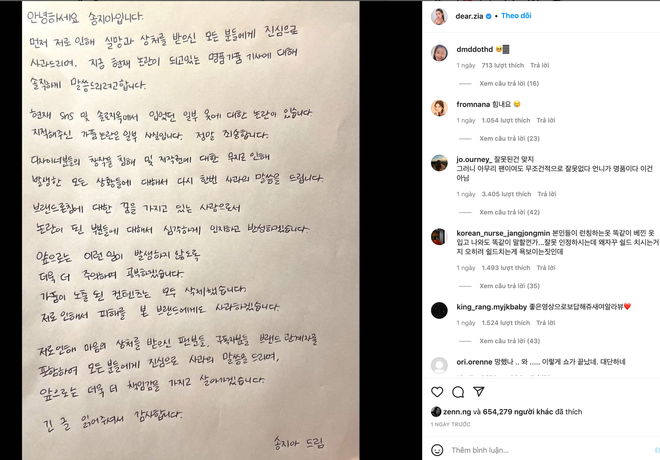 안녕하세요 송지아입니다.
먼저 저로 인해 실망과 상처를 받으신 모든 분들에게 진심으로
사과드리며, 지금 현재 논란이 되고있는 명품가품 기사에 대해
솔직하게 말씀드리려고합니다.
현재 SNS 및 솔로지옥에서 입었던 일부 옷에 대한 논란이 있습니다.
지적해주신 가품논란은 일부 사실입니다. 정말 죄송합니다.
디자이너분들의 창작물 침해 및 저작권에 대한 무지로 인해
발생한 모든 상황들에 대해서 다시 한번 사과의 말씀을 드립니다.
브랜드론칭에 대한 꿈을 가지고 있는 사람으로서
논란이 된 부분들에 대해서 심각하게 인지하고 반성하겠습니다.
앞으로는 이런 일이 발생하지 않도록
더욱 더 주의하며 공부하겠습니다.
가품이 노출 된 컨텐츠는 모두 삭제했습니다.
저로인해서 피해를 본 브랜드에게도 사과하겠습니다.
저로인해 마음의 상처를 받으신 팬분들, 구독자분들 브랜드 관계자를
포함하여 모든분들에게 진심으로 사과의 말씀을 드리며,
앞으로는 더욱 더 책임감을 가지고 살아가겠습니다.
긴 글 읽어주셔서 감사합니다.
송지아 드림
dear.zia • Theo dõi
dmddothd
1 ngày 713 lượt thích Trả lời
Xem câu trả lời (16)
fromnana 힘내요
1 ngày 1.054 lượt thích Trả lời
Xem câu trả lời (23)
jo.ourney_ 잘못된건 맞지
그러니 아무리 팬이여도 무조건적으로 잘못없다 언니가 명품이다 이건
아님
1 ngày 3.405 lượt thích Trả lời
Xem câu trả lời (42)
korean_nurse_jangjongmin 본인들이 런칭하는옷 똑같이 베낀 옷
입고 나와도 똑같이 말할껀가...잘못 인정하시는데 왜자꾸 쉴드 치시는거
지 오히려 쉴드치는게 욕보이는짓인데
1 ngày 1.493 lượt thích Trả lời
Xem câu trả lời (35)
king_rang.myjkbaby 좋은영상으로보답해쥬새여알라뷰
1 ngày 1.524 lượt thích Trả lời
Xem câu trả lời (43)
ori.orenne 망했나 .. 와 ..... 이렇게 쇼가 끝났네. 대단하네
zenn.ng và 654,279 người khác đã thích
1 NGÀY TRƯỚC
Thêm bình luận...